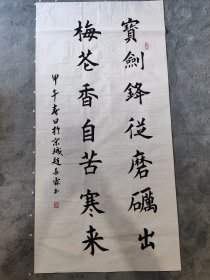 寶劍鋒從磨礪出
梅花香自苦寒来
甲午春日於京城趙喜霖书